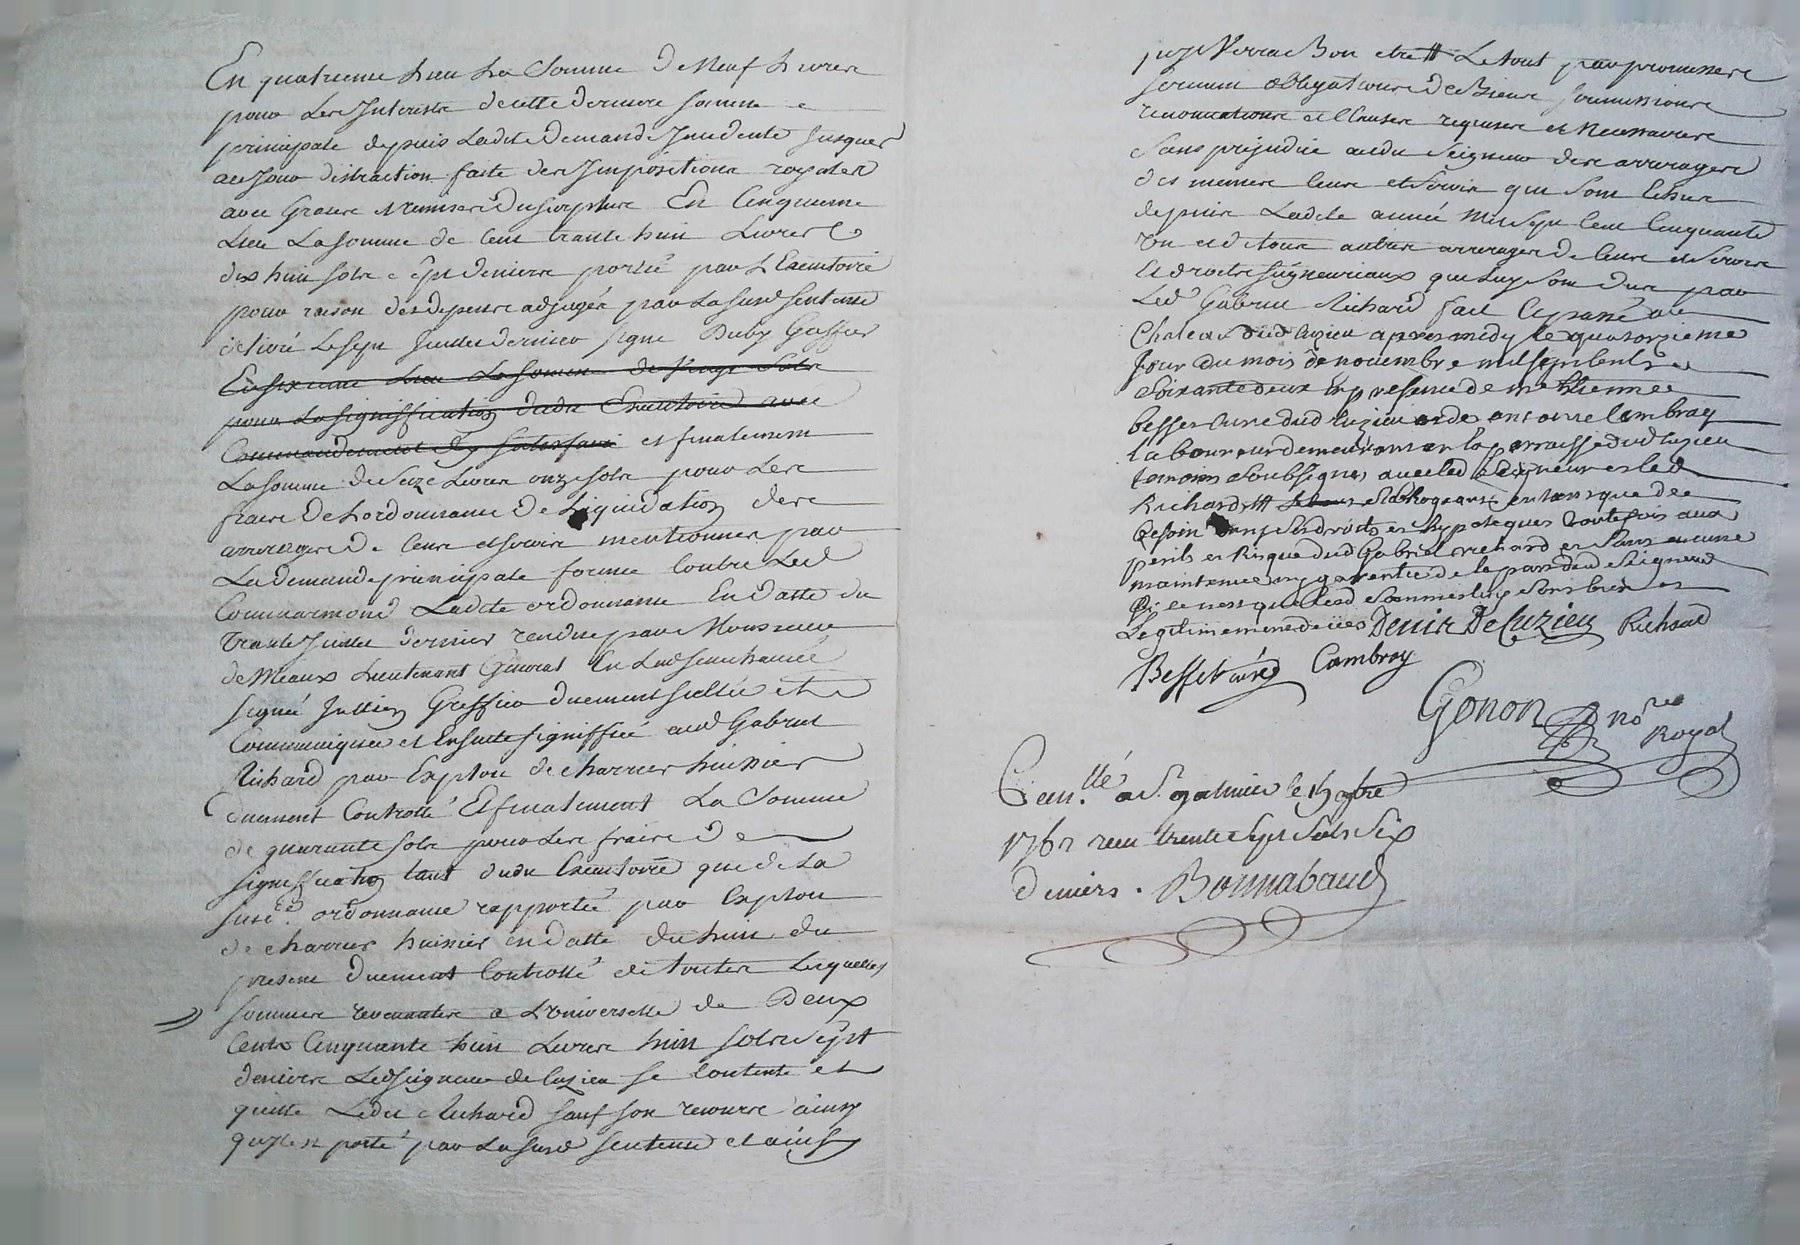 En quatrieme Lieu La Somme de Neuf Livres
pour Les Interests de cette derniere somme
principale depuis Ladite demande Incidente Jusques
a ce Jour distraction faite des Impositions royales
avec Graces et remises du Surplus En Cinquieme
Lieu La somme de Cent trante huit Livres
dix huit sols sept deniers portée par L Executoire
pour raison des depens adjugés par La susd sentence
delivré Le sept Juillet dernier signé Duby Greffier
En sixieme Lieu La somme de Vingt Sols
pour La signiffication dudu Executoire avec
Commandement de satisfaire et finalement
La somme de Seize Livres onze sols pour Les
frais de Lordonnance de Liquidation des
arrerages de Cens et servis mentionnes par
La demande principale formée Contre Led
Ladite ordonnance En datte du
trante Juillet dernier rendue par Monsieur
de Meaux Lieutenant General En Lad Senechaucée
signé Jullien Greffier duement scellée et
Communiquée et Ensuite signiffiée aud Gabriel
Richard par Exploit de charrier huissier
duement Controllé Et finalement La Somme
de quarante sols pour Les frais de
signiffication tant dudit Executoire que de La
susd.e ordonnance rapportée par Exploit
de charrier huissier en datte du huit du
present duement Controllé de toutes Lesquelles
sommes revenantes a L'universelle de Deux
Cents Cinquante huit Livres huit sols sept
deniers Led seigneur de Cuzieu se Contente et
quitte Ledit Richard sauf son recours ainsy
qu'il est porté par La susd sentence et ainsy
qu'il Verra Bon etre # Le tout par promesses
serment obligations de Biens soumissions
renonciations et Clauses requises et Necessaires
Sans prejudice audit Seigneur des arrerages
des memes Cens et servis qui sont echus
depuis Ladite année Mil Sept Cent Cinquante
un et de tous autres arrerages de Cens et servis
et droits seigneuriaux qui Luy sont dus par
Led Gabriel Richard fait et passé au
Chateau dud Cuzieu apres midy le quatorzieme
Jour du mois de novembre mil sept cent
Soixante deux En presence de m.re Etienne
besse Cure dud Cuzieu et de antoine Cambray
laboureur demeurant en la parroisse dud Cuzieu
temoins soubsignes avec led Seigneur et led
Richard # en tant que de
besoin dans ses droits et hypoteques toutefois aux
perils et Risque dud Gabriel Richard et sans aucune
maintenue ny garentie de la part dud Seigneur
si ce n'est que lesd sommes luy sont bien et
Legitimement deües Denis De Cuzieu Richard
Besse curé Cambray
Gonon no.re
Royal
Con.llé a S.t galmier le 15 9bre
1762 receu trente Sept Sols Six
deniers. Bonnabaud